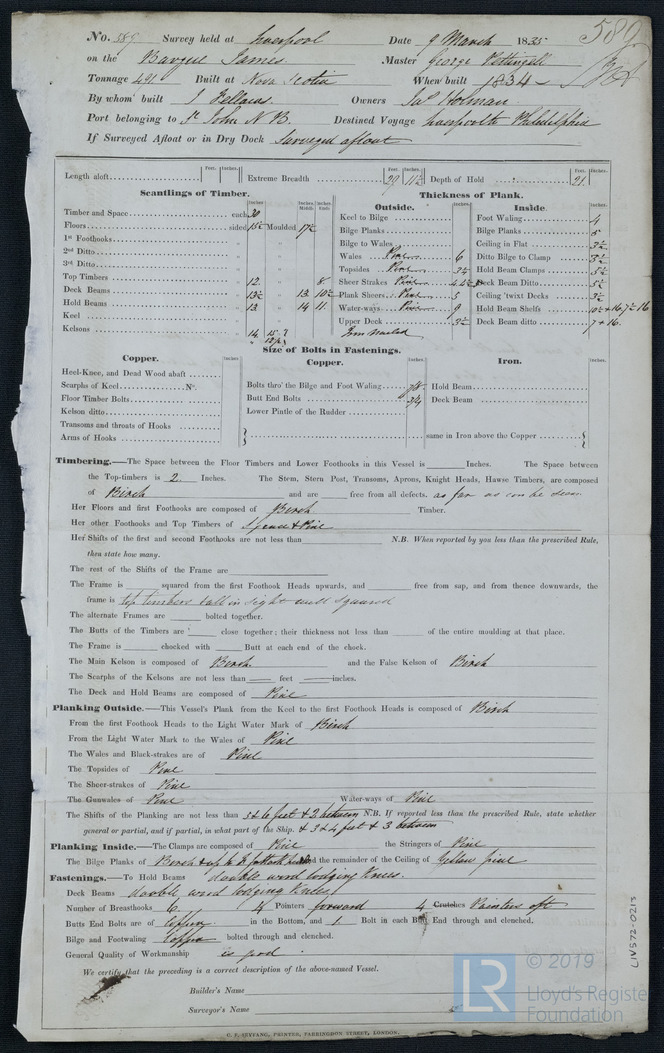 No. 589 Survey held at Liverpool Date 9 March 1835
589
on the Barque James Master George Pettingall
Tonnage 491 Built at Nova Scotia When built 1834
By whom built J Owners Jas Holman
Port belonging to St John N B. Destined Voyage Liverpool to Philadelphia
If Surveyed Afloat or in Dry Dock Surveyed afloat
Feet. Inches. Feet. Inches. Feet. Inches.
Length aloft Extreme Breadth 29 11½ Depth of Hold 21
Scantlings of Timber. Thickness of Plank.
Inches Inches Middle Inches Ends
Timber and Space each 30
Floors sided 15½ Moulded 17½
1st Foothooks
2nd Ditto
3rd Ditto
Top Timbers 12 8
Deck Beams 13½ 13 10½
Hold Beams 13 14 11
Keel
Kelsons 14 15
Outside. Inches
Keel to Bilge
Bilge Planks
Bilge to Wales
Wales Pine 6
Topsides Pine 3½
Sheer Strakes Pine
Plank Sheers Pine 5
Water-ways Pine 9
Upper Deck 3½
Inside. Inches
Foot Waling 4
Bilge Planks 5
Ceiling in Flat 3½
Ditto Bilge to Clamp 3½
Hold Beam Clamps 5½
Deck Beam Ditto 5½
Ceiling 'twixt Decks 3½
Hold Beam Shelfs
Deck Beam ditto 7 + 16
Size of Bolts in Fastenings.
Copper. Copper. Iron.
Heel-Knee, and Dead Wood abaft
Scarphs of Keel No.
Floor Timber Bolts
Kelson ditto
Transoms and throats of Hooks
Arms of Hooks
Bolts thro' the Bilge and Foot Waling 7/8
Butt End Bolts 3/4
Lower Pintle of the Rudder
Hold Beam
Deck Beam
same in Iron above the Copper
Timbering.—The Space between the Floor Timbers and Lower Foothooks in this Vessel is Inches. The Space between
the Top-timbers is 2 Inches. The Stem, Stern Post, Transoms, Aprons, Knight Heads, Hawse Timbers, are composed
of Birch and are free from all defects. as far as can be seen
Her Floors and first Foothooks are composed of Birch Timber.
Her other Foothooks and Top Timbers of Spruce & Pine
Her Shifts of the first and second Foothooks are not less than N.B. When reported by you less than the prescribed Rule,
then state how many.
The rest of the Shifts of the Frame are
The Frame is squared from the first Foothook Heads upwards, and free from sap, and from thence downwards, the
frame is top timbers all in sight well squared
The alternate Frames are bolted together.
The Butts of the Timbers are close together; their thickness not less than of the entire moulding at that place.
The Frame is chocked with Butt at each end of the chock.
The Main Kelson is composed of Birch and the False Kelson of Birch
The Scarphs of the Kelsons are not less than feet inches.
The Deck and Hold Beams are composed of Pine
Planking Outside.—This Vessel's Plank from the Keel to the first Foothook Heads is composed of Birch
From the first Foothook Heads to the Light Water Mark of Birch
From the Light Water Mark to the Wales of Pine
The Wales and Black-strakes are of Pine
The Topsides of Pine
The Sheer-strakes of Pine
The Gunwales of Pine Water-ways of Pine
The Shifts of the Planking are not less than 5 & 6 feet & 2 between N.B. If reported less than the prescribed Rule, state whether
general or partial, and if partial, in what part of the Ship. & 3 & 4 feet & 3 between
Planking Inside.—The Clamps are composed of Pine the Stringers of Pine
The Bilge Planks of Birch & up to 2 foothook heads and the remainder of the Ceiling of Yellow pine
Fastenings.—To Hold Beams double wood lodging Knees.
Deck Beams double wood lodging Knees,
Number of Breasthooks 6 4 Pointers forward 4 Crutches Pointers aft
Butts End Bolts are of Copper in the Bottom, and 1 Bolt in each Butt End through and clenched.
Bilge and Footwaling Copper bolted through and clenched.
General Quality of Workmanship is good
We certify that the preceding is a correct description of the above-named Vessel.
Builder's Name
Surveyor's Name
C. F. SEYFANG, PRINTER, FARRINGDON STREET, LONDON.
LIV572-0215
LR © 2019
Lloyd's Register
Foundation